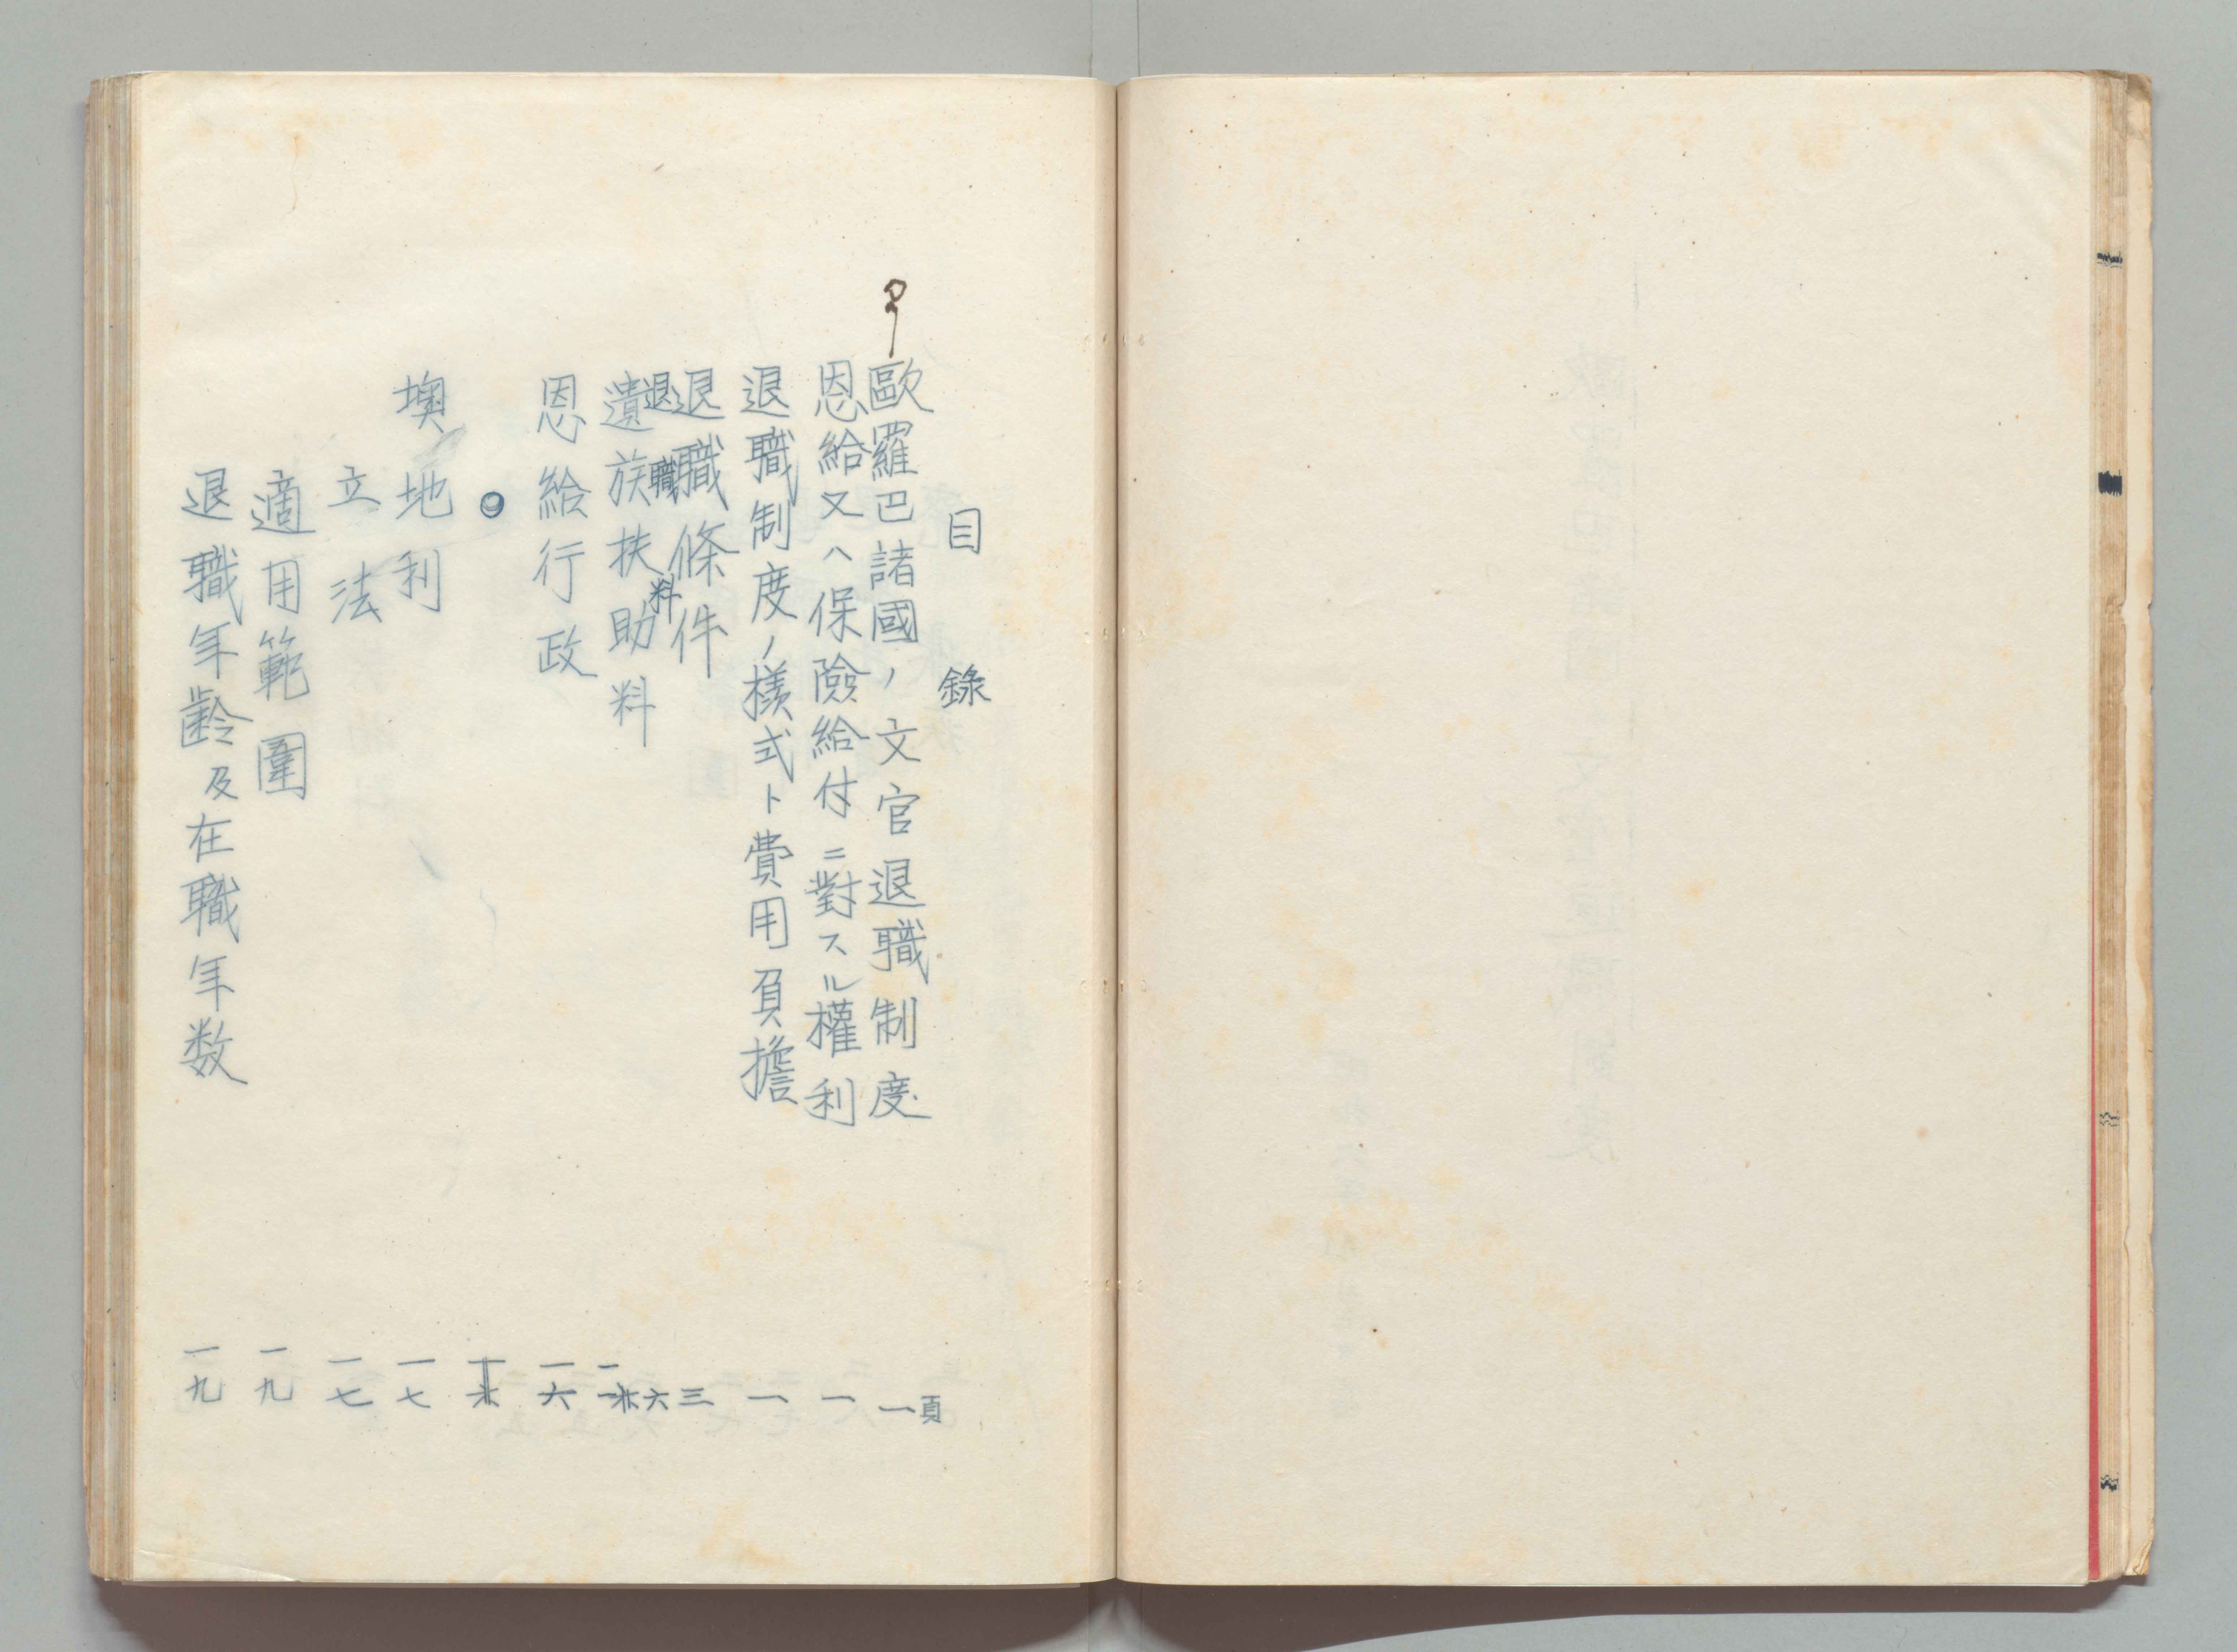 目錄
歐羅巴諸國ノ文官退職制度 一頁
恩給又ハ保險給付ニ對スル權利 一
退職制度ノ樣式ト費用負擔 一
退職條件 三
退職料 六
遺族扶助料
恩給行政 一六
墺地利 一七
立法 一七
適用範圍 一九
退職年齡及在職年数 一九